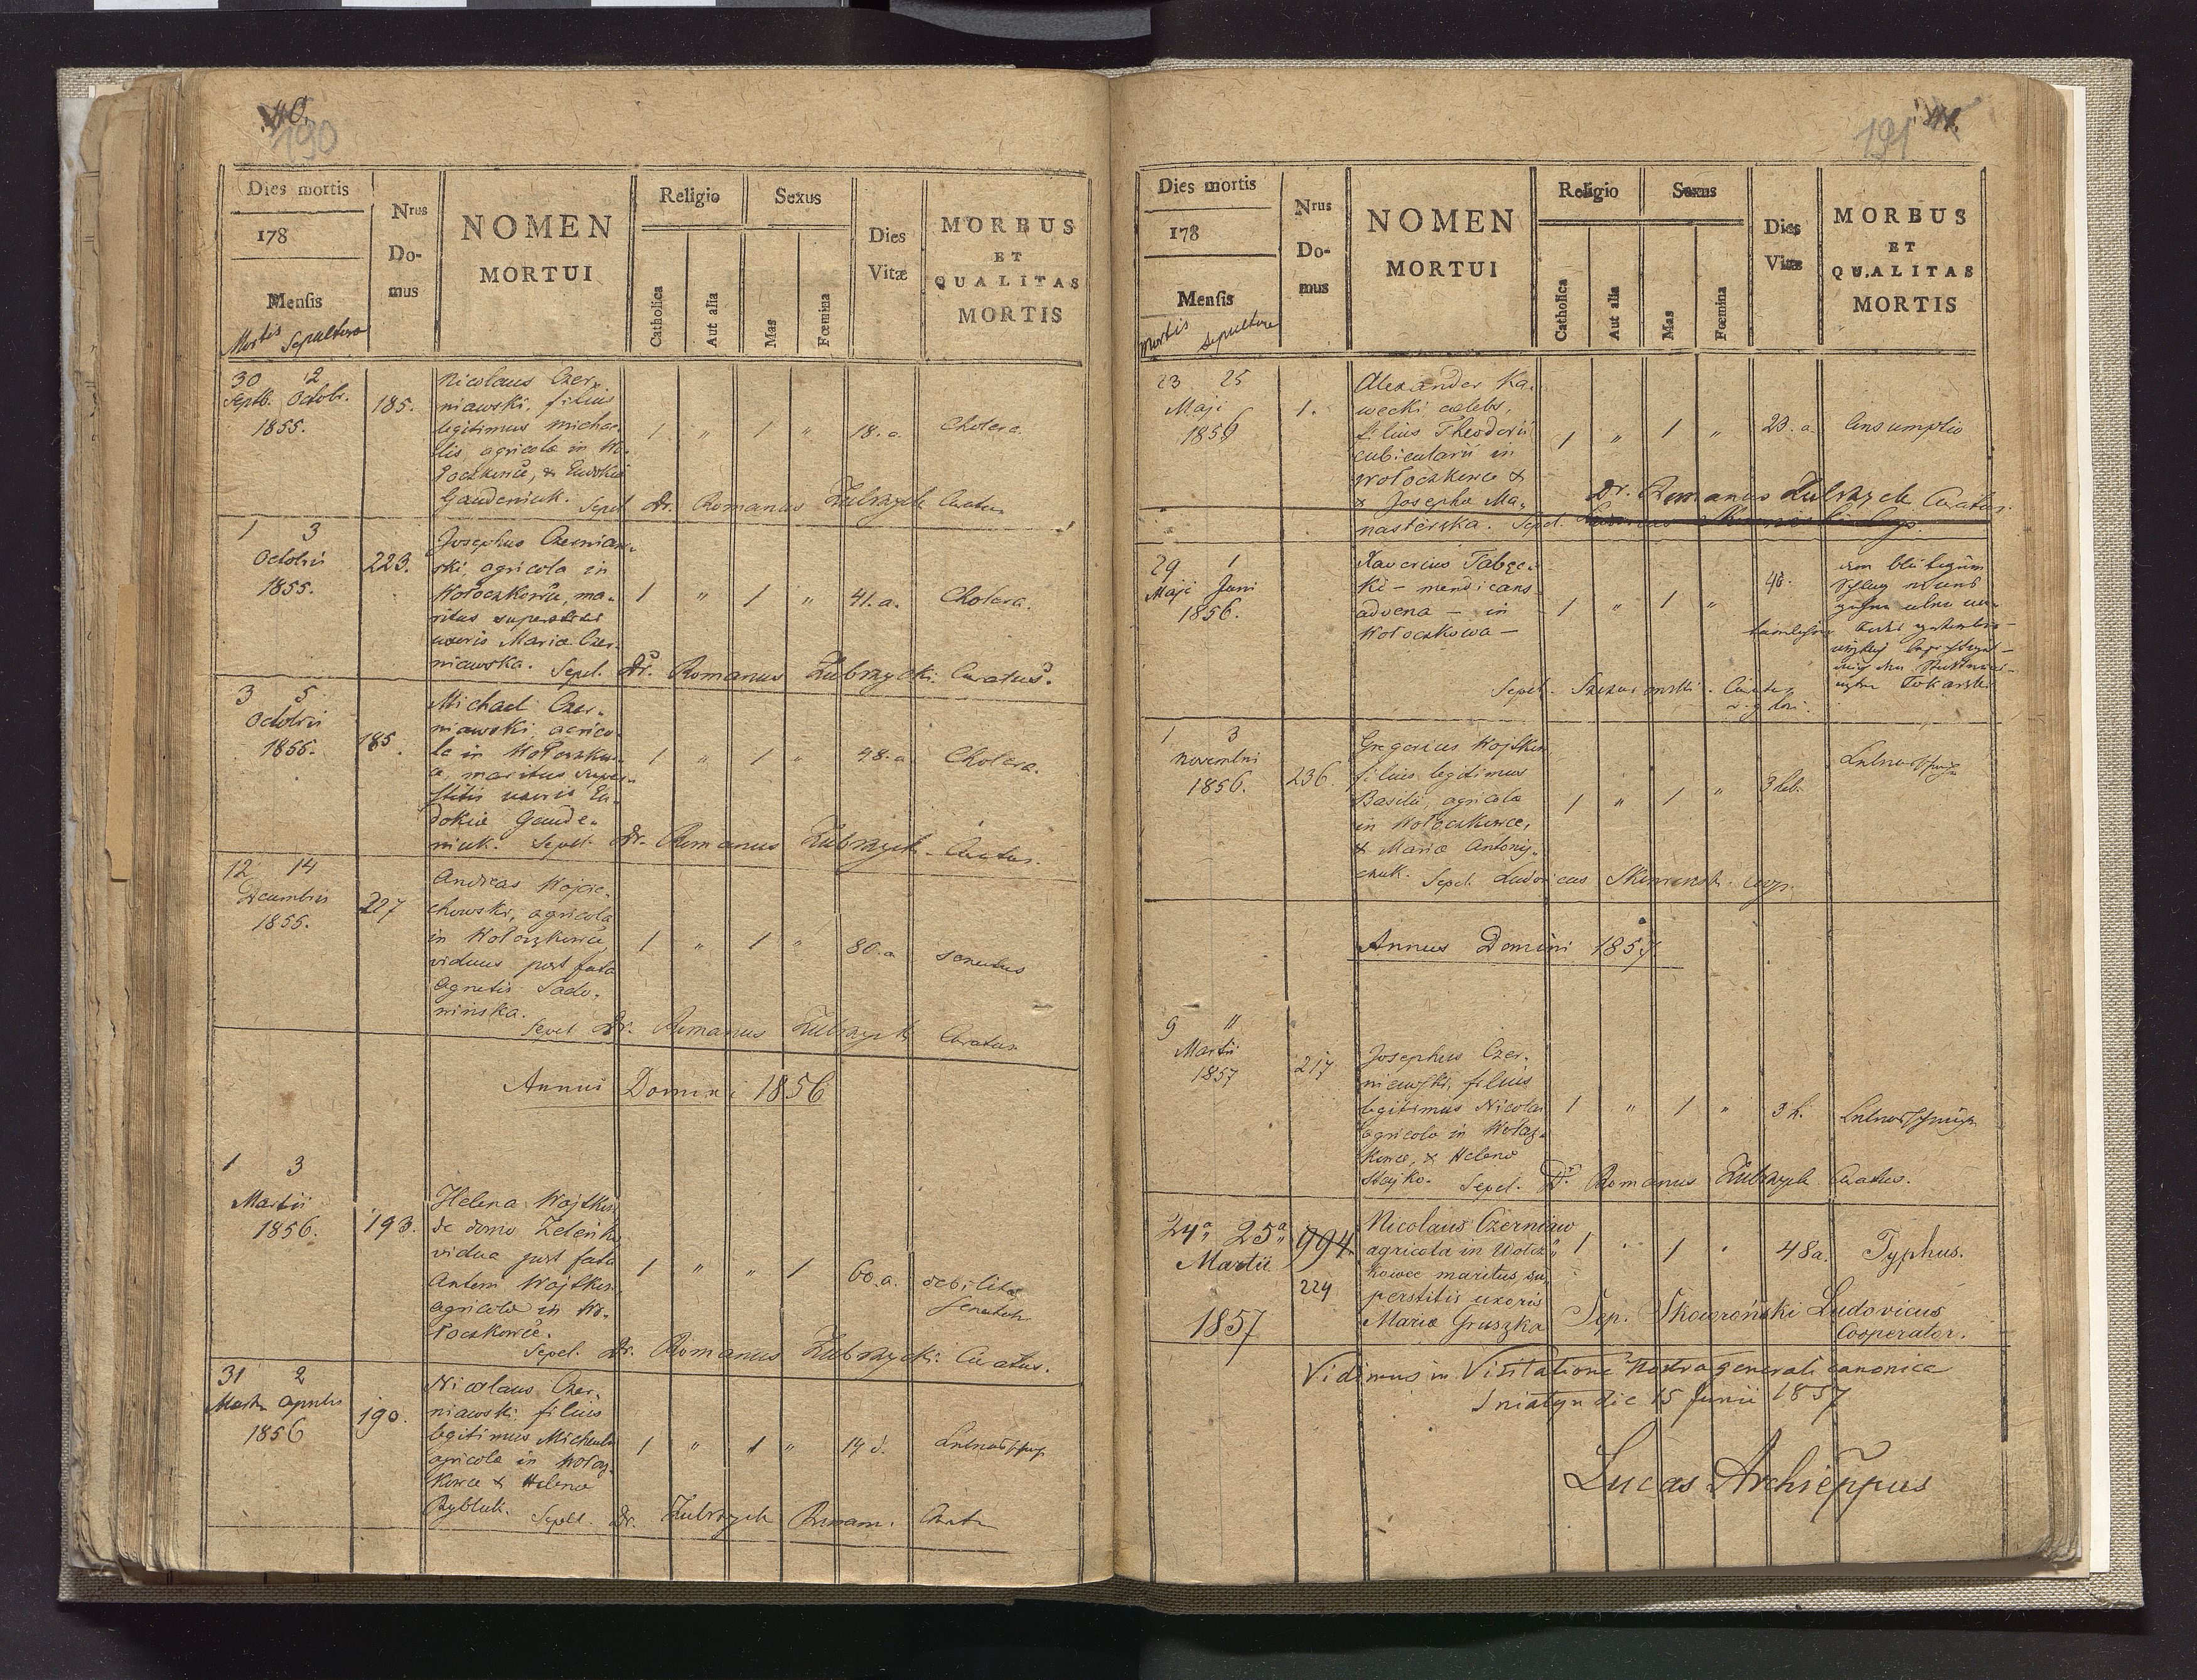 40.
190
Dies mortis
178
Mensis
Mortis Sepulturae
Nrus
Do-
mus
NOMEN
MORTUI
Religio
Catholica
Aut alia
Sexus
Mas
Fœmina
Dies
Vitæ
MORBUS
ET
QUALITAS
MORTIS
30 2
Septb. Octobr.
1855.
185.
Nicolaus Czer-
niawski, filius
legitimus Micha-
elis, agricolae in Wo-
łoczkowce, & Eudokia
Gaudeniuk. Sepel. Dr. Romanus Zubrzycki Curatus
1 " 1 " 18. a. Cholera.
1 3
Octobris
1855.
223.
Josephus Czerniaw-
ski, agricola in
Wołoczkowce, ma-
ritus superstitis
uxoris Mariae Czer-
niawska. Sepel. Dr. Romanus Zubrzycki Curatus.
1 " 1 " 41. a. Cholera.
3 5
Octobris
1855.
185.
Michael Czer-
niawski, agrico-
la in Wołoczkow-
ce, maritus super-
stitis uxoris Eu-
dokiae Gaude-
niuk. Sepel. Dr. Romanus Zubrzycki Curatus.
1 " 1 " 48. a. Cholera.
12 14
Decembris
1855.
227
Andreas Wojcie-
chowski, agricola
in Wołoczkowce,
viduus post fata
Agnetis Sado-
winska.
Sepel. Dr. Romanus Zubrzycki Curatus
1 " 1 " 80. a senectus
Annus Domini 1856
1 3
Martii
1856.
193.
Helena Wojtkow
de domo Zelenko
vidua post fata
Antoni Wojtkow
agricola in Wo-
łoczkowce.
Sepel. Dr. Romanus Zubrzycki Curatus.
1 " " 1 60. a. debilitas
senectutis
31 2
Martii Aprilis
1856
190.
Nicolaus Czer-
niawski filius
legitimus Michaelis
agricolae in Wołocz-
kowce & Helenae
Rybluk. Sepel. Dr. Zubrzycki Roman. Curatus
1 " 1 " 14 d.
191
Dies mortis
178
Mensis
mortis sepulturae
Nrus
Do-
mus
NOMEN
MORTUI
Religio
Catholica
Aut alia
Sexus
Mas
Fœmina
Dies
Vitæ
MORBUS
ET
QUALITAS
MORTIS
23 25
Maji
1856
1.
Alexander Ka-
wecki caelebs,
filius Theodorii
cubicularii in
Wołoczkowce &
& Josepha Ma-
nasterska. Sepel.
Dr. Romanus Zubrzycki Curatus.
1 " 1 " 23. a Consumptio
29 1
Maji Juni
1856.
Xaverius Tabęc-
ki - mendicans
advena - in
Wołoczkowa -
1 " 1 " 40.
Tokarski
Sepel. Curatus
1 3
novembri
1856.
236.
Gregorius Wojtkow
filius legitimus
Basilii, agricolae
in Wołoczkowce,
& Mariae Antonij-
czuk. Sepel. Ludovicus Skowronski coop.
1 " 1 " 3 heb.
Annus Domini 1857.
9 11
Martii
1857
217
Josephus Czer-
niawski, filius
legitimus Nicolai
agricola in Wołocz-
kowce, & Helena
Stajko. Sepel. Dr. Romanus Zubrzycki Curatus.
1 " 1 " 3 h.
24a 25a
Martii
1857
994.
224
Nicolaus Czerniaw
agricola in Wołcz-
kowce, maritus su-
perstitis uxoris
Mariæ Gruszka
1 " 1 " 48 a. Typhus.
Sep. Skowroński Ludovicus
Cooperator.
Vidimus in Visitatione Nostra generali canonica
Sniatyn die 15 Junii 1857
Lucas Archieppus